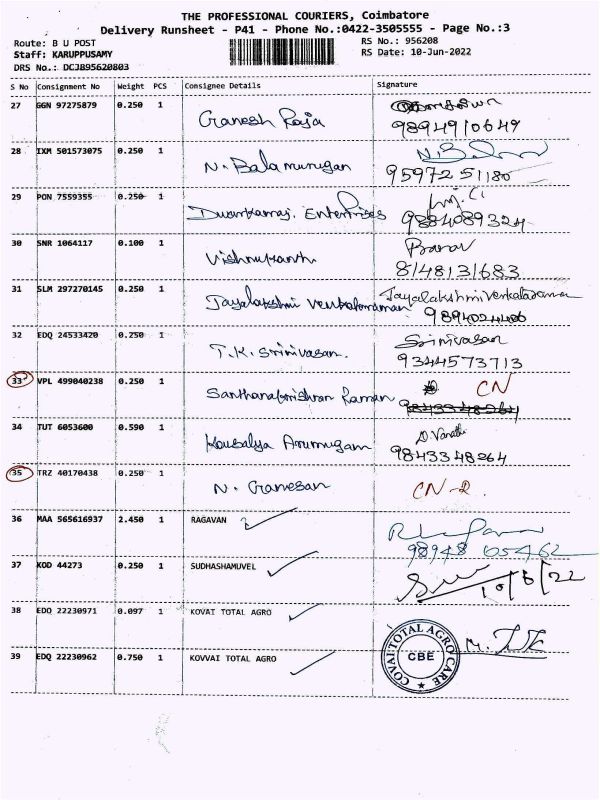 THE PROFESSIONAL COURIERS, Coimbatore
Delivery Runsheet - P41 - Phone No.:0422-3505555 - Page No.:3
Route: B U POST RS No.: 956208
Staff: KARUPPUSAMY RS Date: 10-Jun-2022
DRS No.: DCJB95620803
S No Consignment No Weight PCS Consignee Details Signature
27 GGN 97275879 0.250 1 Ganesh Raja
9894910649
28 IXM 501573075 0.250 1 N. Bala murugan
9597251180
29 PON 7559355 0.250 1 Enterprises
9884089324
30 SNR 1064117 0.100 1 Vishnukanth
8148131683
31 SLM 297270145 0.250 1 Jayalakshmi Venkataraman Jayalakshmi Venkataraman
32 EDQ 24533420 0.250 1 T.K. Srinivasan. Srinivasan
9344573713
33 VPL 499040238 0.250 1 Santhanakrishnan Raman CN
34 TUT 6053600 0.590 1 Kousalya Arumugam D. Vanathi
9843348264
35 TRZ 40170438 0.250 1 N. Ganesan CN-2.
36 MAA 565616937 2.450 1 RAGAVAN
98948 05462
37 KOD 44273 0.250 1 SUDHASHAMUVEL
10/6/22
38 EDQ 22230971 0.097 1 KOVAI TOTAL AGRO
39 EDQ 22230962 0.750 1 KOVVAI TOTAL AGRO
COVAI TOTAL AGRO CARE
CBE